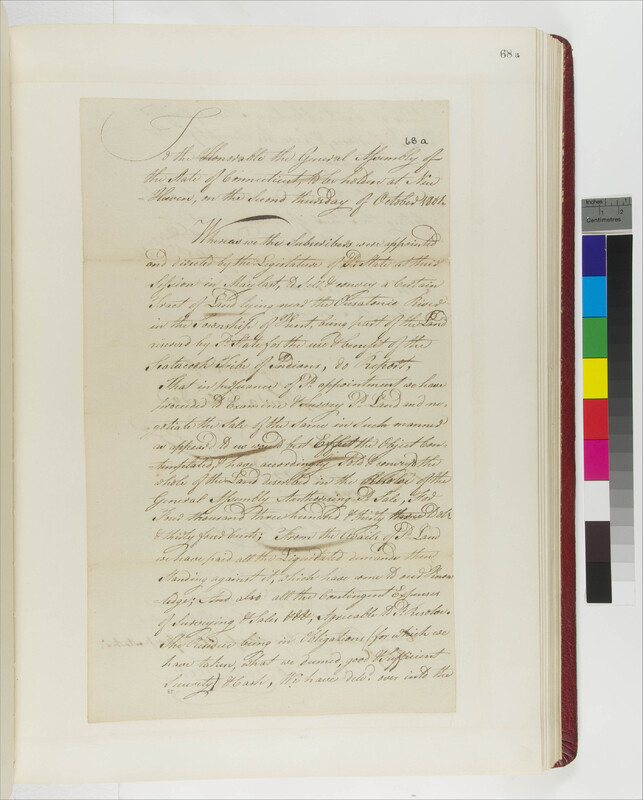 68a
68a
To the Honorable the General Assembly of
the State of Connecticut, to be holden at New
Haven, on the Second thursday of October 1801.
Whereas we the Subscribers were appointed
and directed by the Legislature of sd. State at their
Session in May last, to Sell & convey a Certain
tract of Land lying near the Ousatonic River
in the Township of Kent, being part of the Land
reserved by sd. State for the use & benefit of the
Scatacook Tribe of Indians, do Report,
That in pursuance of sd. appointment we have
proceeded to Examine & Survey sd. Land and ne-
gotiate the Sale of the Same in Such manner
as appeard to us would best Effect the Object Con-
templated, & have accordingly Sold & conveyed the
whole of the Land directed in the Resolve of the
General Assembly Authorizing sd. Sale, For
four thousand three hundred & thirty Dols.
& thirty four Cents; From the Avails of sd. Land
we have paid all the Liquidated demands then
Standing against it, which have come to our Know-
ledge; And also all the Contingent Expences
of Surveying & Sales Agreable to sd. Resolve.
The Residue being in Obligations (for which we
have taken, what we deemed, good & Sufficient
Security) & Cash, We have delivd. over into the
Inches
1
2
Centimetres